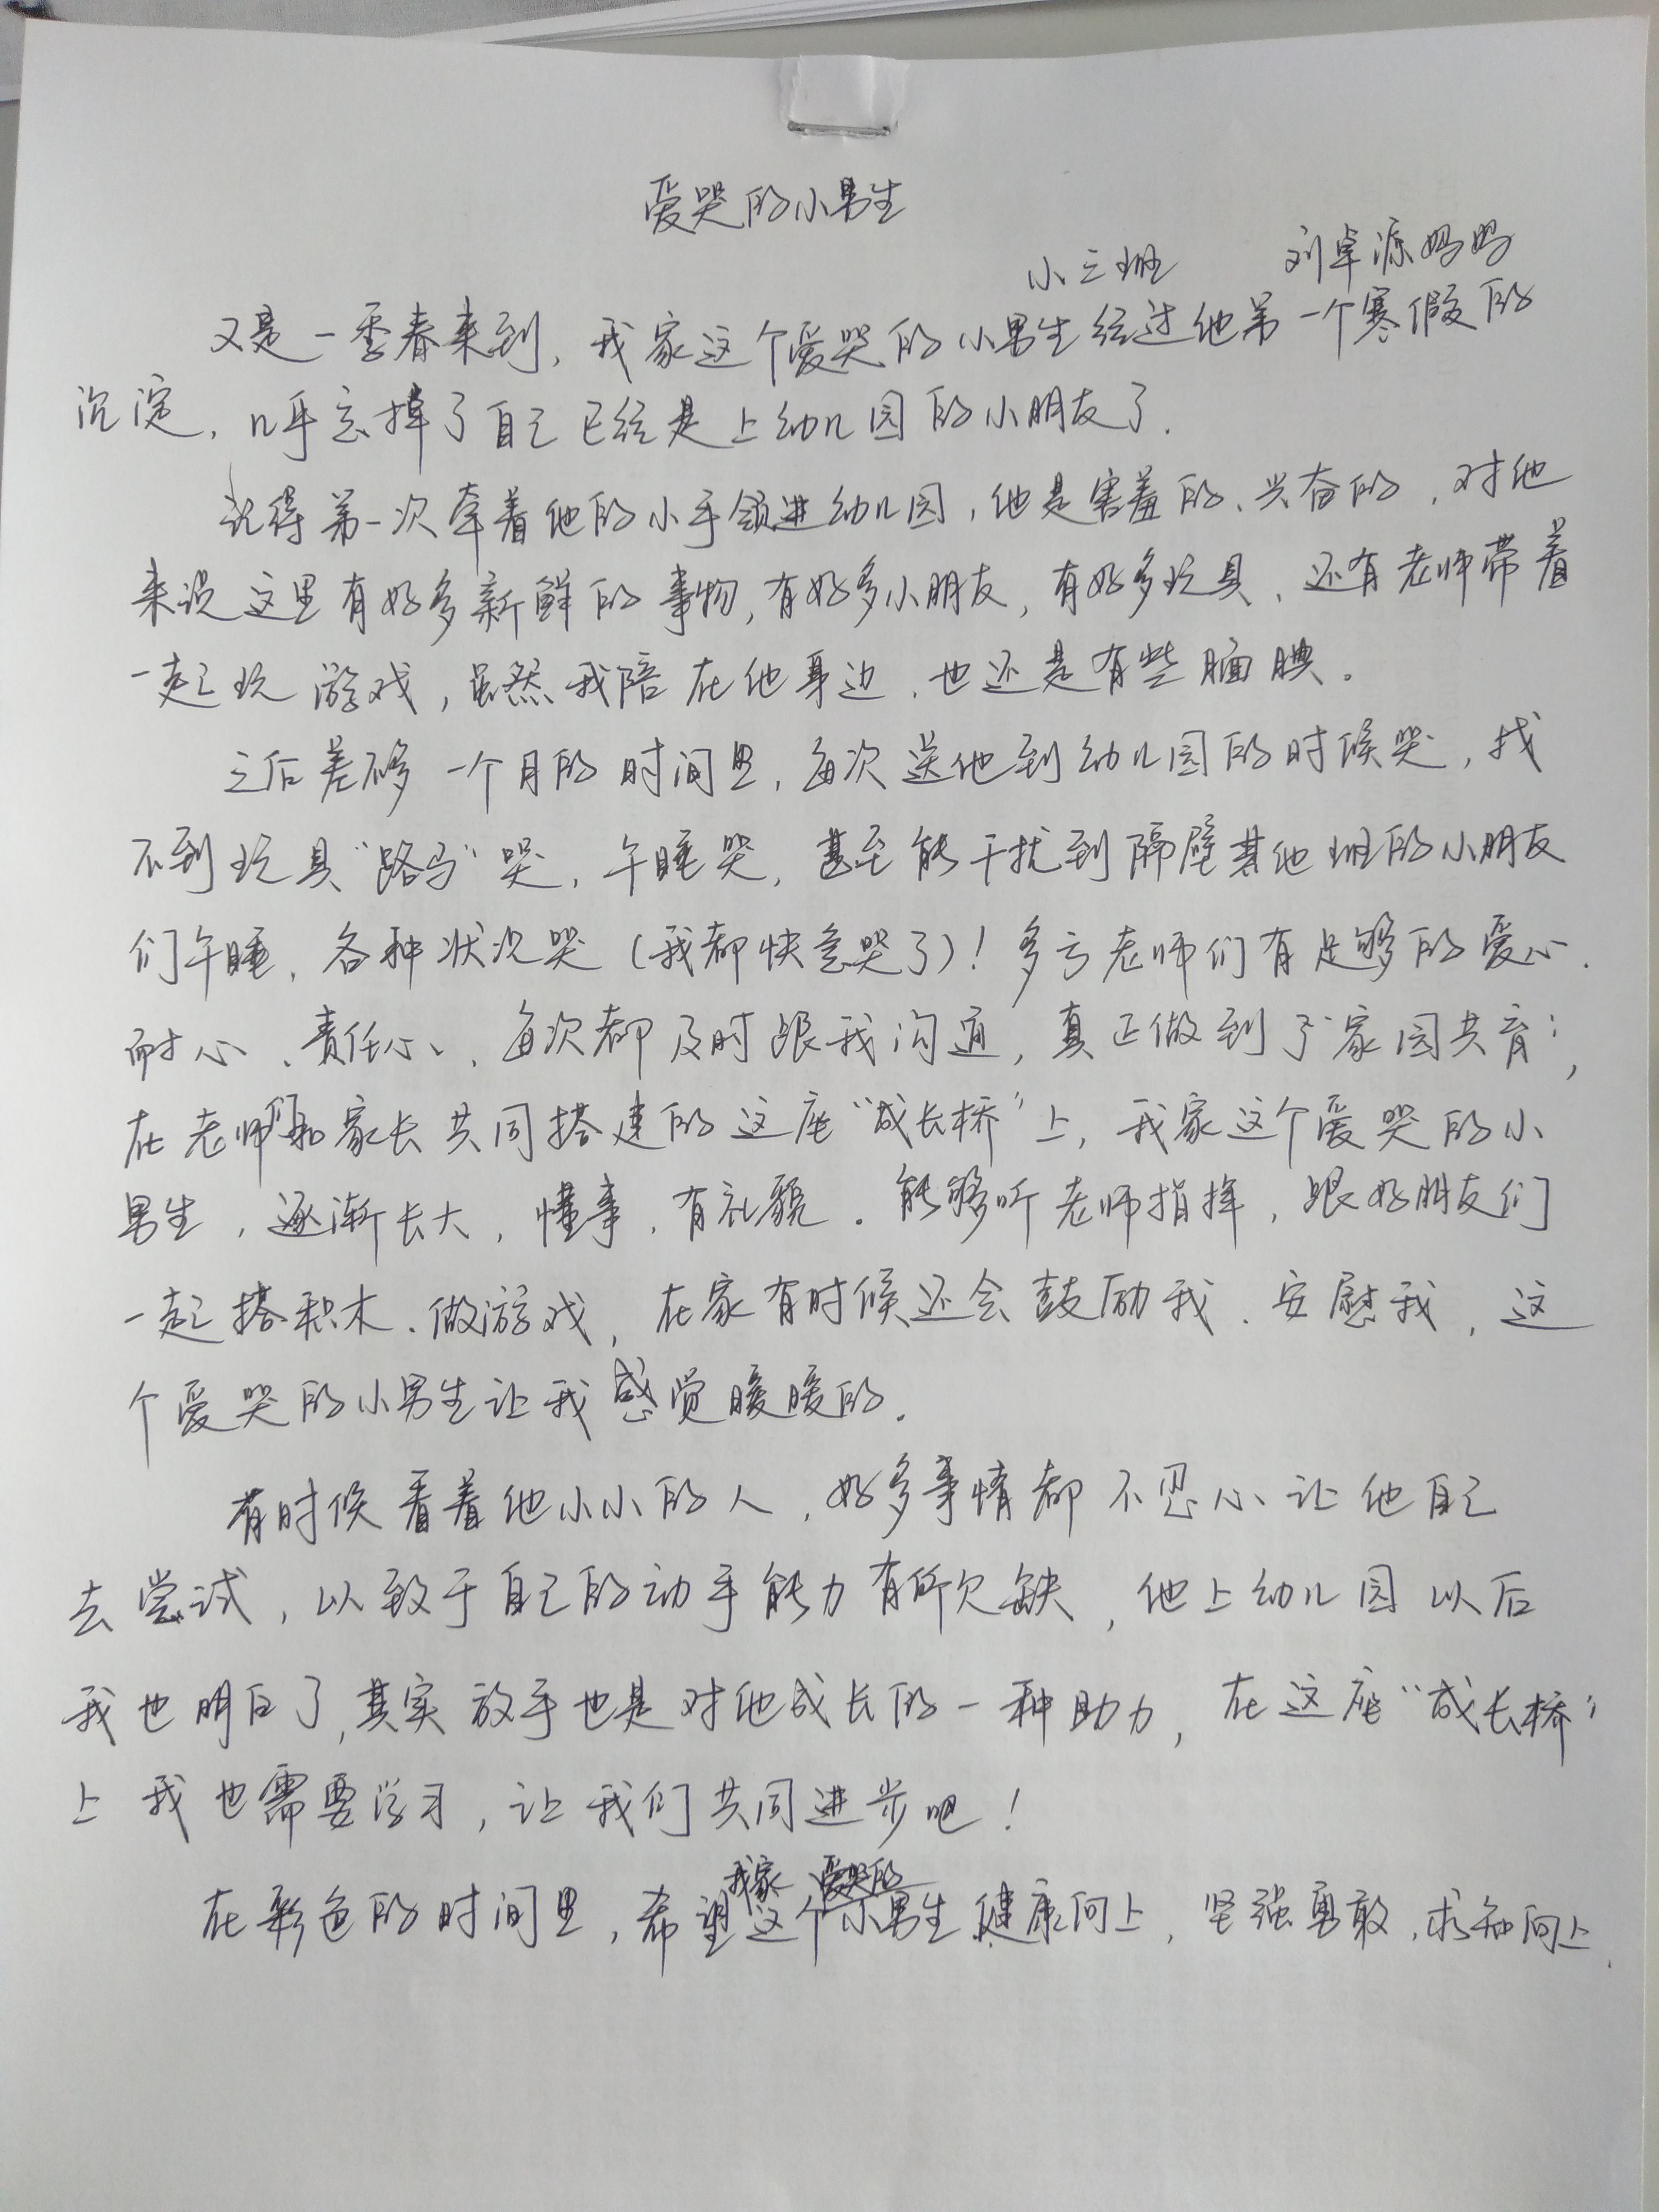 爱哭的小男生
小三班 刘卓源妈妈
又是一季春来到,我家这个爱哭的小男生经过他第一个寒假的
沉淀,几乎忘掉了自己已经是上幼儿园的小朋友了.
记得第一次牵着他的小手领进幼儿园,他是害羞的、兴奋的,对他
来说这里有好多新鲜的事物,有好多小朋友,有好多玩具、还有老师带着
一起玩游戏,虽然我陪在他身边,也还是有些腼腆。
之后差不多一个月的时间里,每次送他到幼儿园的时候哭,找
不到玩具“路马”哭,午睡哭,甚至能干扰到隔壁其他班的小朋友
们午睡,各种状况哭(我都快急哭了)!多亏老师们有足够的爱心、
耐心、责任心、每次都及时跟我沟通,真正做到了“家园共育”,
在老师们和家长共同搭建的这座“成长桥”上,我家这个爱哭的小
男生,逐渐长大,懂事,有礼貌。能够听老师指挥,跟好朋友们
一起搭积木、做游戏,在家有时候还会鼓励我、安慰我,这
个爱哭的小男生让我感觉暖暖的.
有时候看着他小小的人,好多事情都不忍心让他自己
去尝试,以致于自己的动手能力有所欠缺,他上幼儿园以后
我也明白了,其实放手也是对他成长的一种助力,在这座“成长桥”
上我也需要学习,让我们共同进步吧!
在彩色的时间里,希望我家这个爱哭的小男生健康向上,坚强勇敢,求知向上.